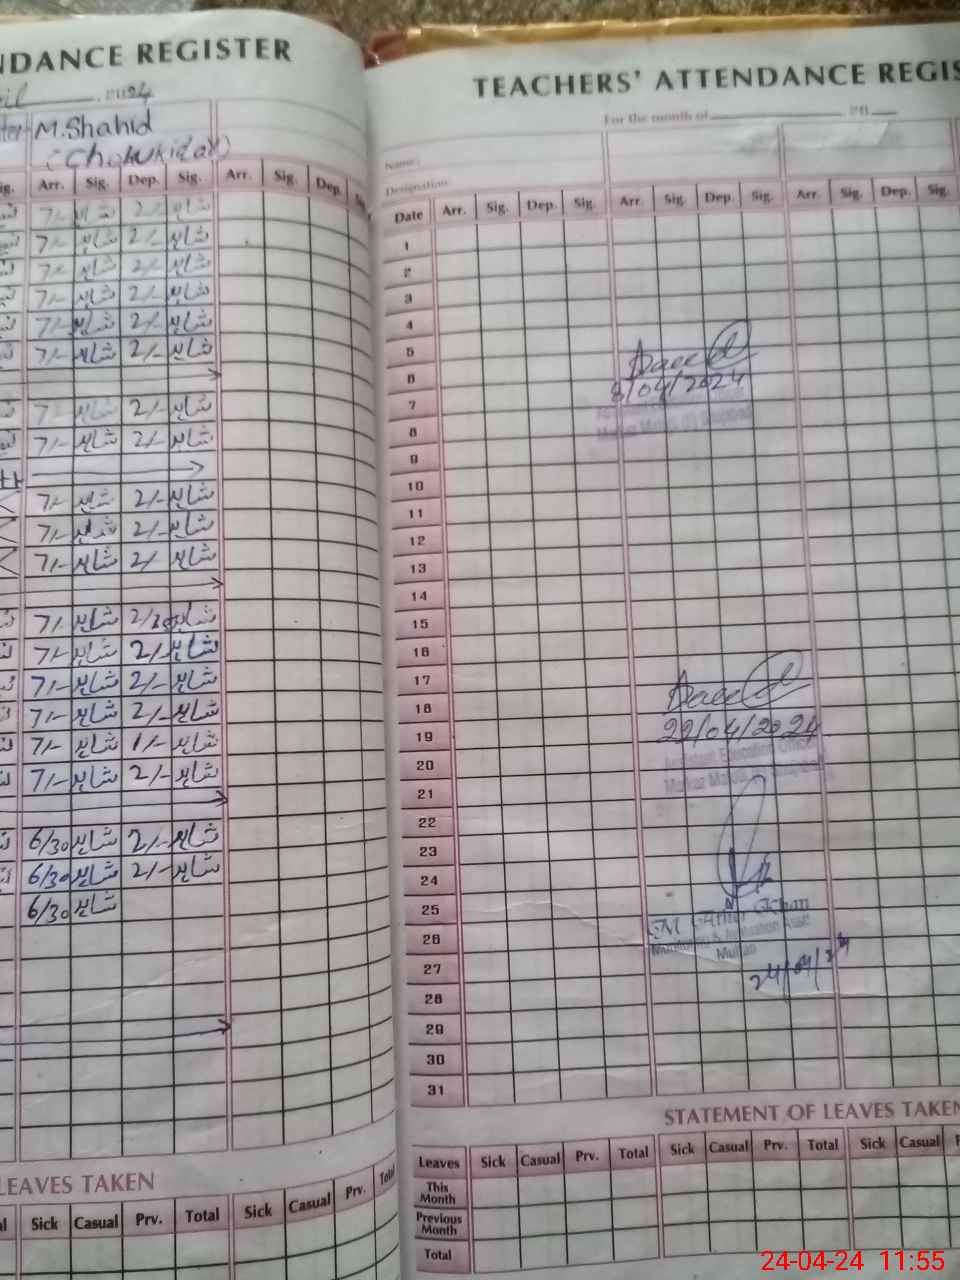 NDANCE REGISTER
2024
M. Shahid
(Chowkidar)
Arr. Sig. Dep. Sig. Arr. Sig. Dep.
7/- شاہد 2/- شاہد
7/- شاہد 2/- شاہد
7/- شاہد 2/- شاہد
7/- شاہد 2/- شاہد
7/- شاہد 2/- شاہد
7/- شاہد 2/- شاہد
7/- شاہد 2/- شاہد
7/- شاہد 2/- شاہد
7/- شاہد 2/- شاہد
7/- شاہد 2/- شاہد
7/- شاہد 2/- شاہد
7/- شاہد 2/30 شاہد
7/- شاہد 2/- شاہد
7/- شاہد 2/- شاہد
7/- شاہد 2/- شاہد
7/- شاہد 1/- شاہد
7/- شاہد 2/- شاہد
6/30 شاہد 2/- شاہد
6/30 شاہد 2/- شاہد
6/30 شاہد
LEAVES TAKEN
Sick Casual Prv. Total Sick Casual Prv. Total
TEACHERS' ATTENDANCE REGIS
For the month of 20
Name:
Designation
Date Arr. Sig. Dep. Sig. Arr. Sig. Dep. Sig. Arr. Sig. Dep. Sig.
1
2
3
4
5
6
8/04/2024
7
8
9
10
11
12
13
14
15
16
17
18
22/04/2024
19
Assistant Education Officer
20
21
22
23
24
25
M Amir Khan
26
Monitoring & Evaluation Asstt
Multan
27
24/04/24
28
29
30
31
STATEMENT OF LEAVES TAKEN
Leaves Sick Casual Prv. Total Sick Casual Prv. Total Sick Casual
This Month
Previous Month
Total
24-04-24 11:55